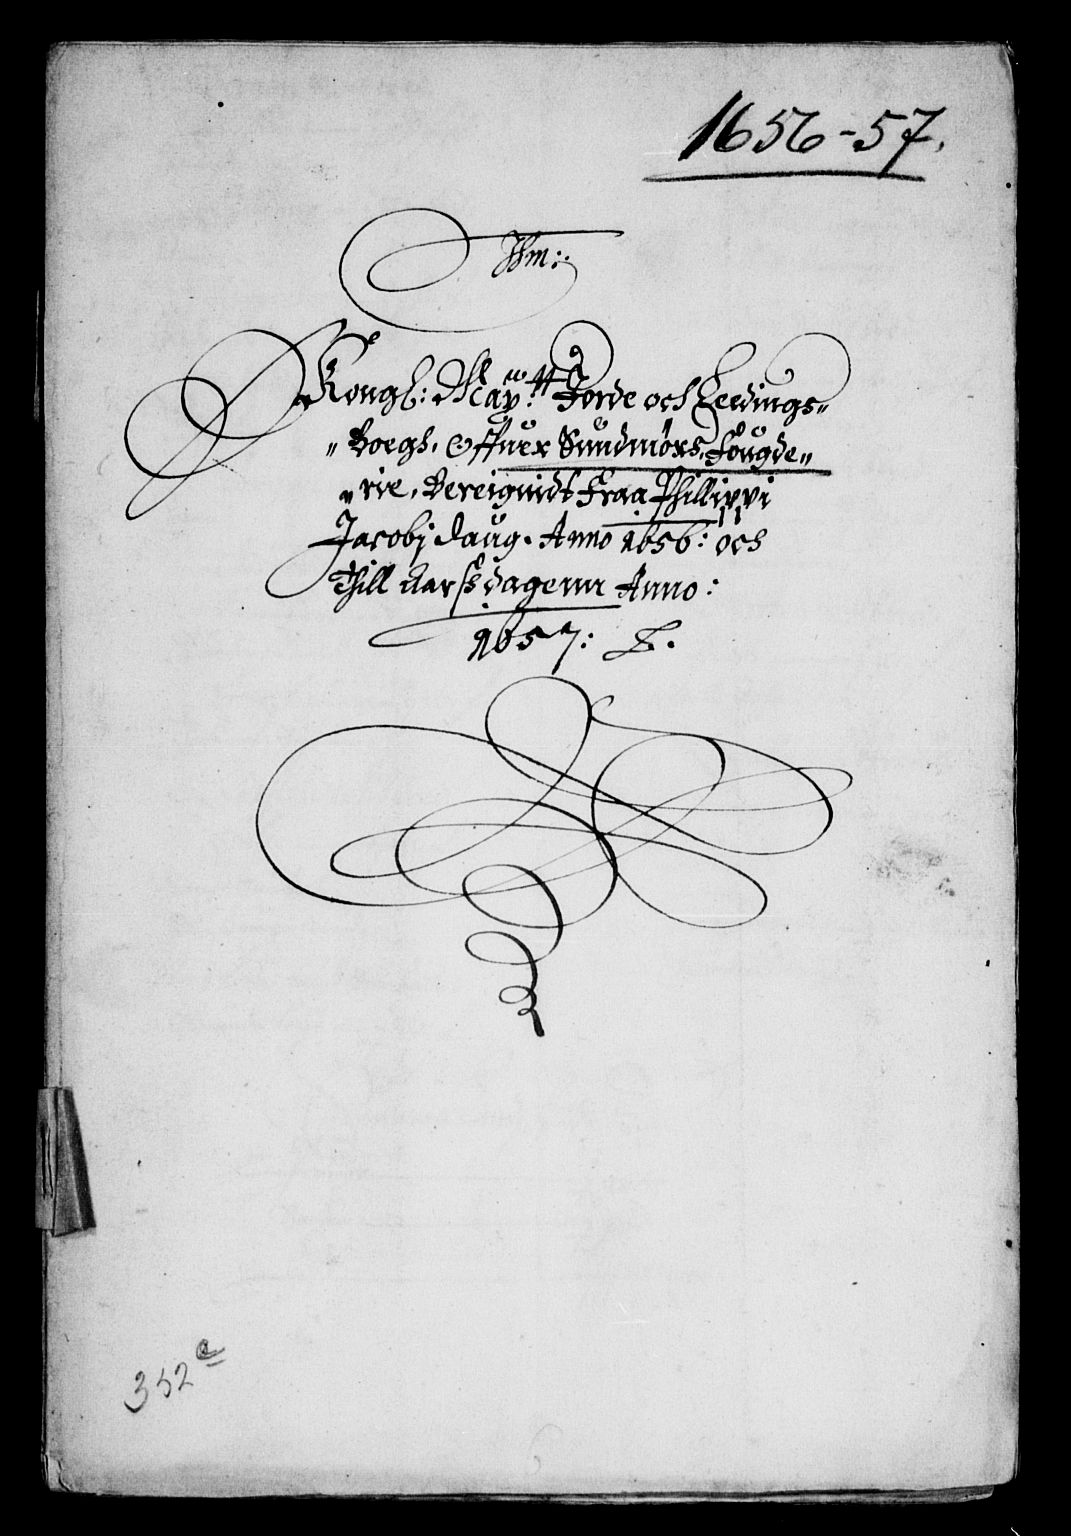 1656-57.
Ihm:
Kongl: May:tt Jorde och Leedings„
„Boegh, Offuer Sundmörs, Fougde„
„rie, Bereignidt Fraa Phillippi
Jacobj daug. Anno 1656: och
Thill Aarsdagenn Anno:
1657:
352 a